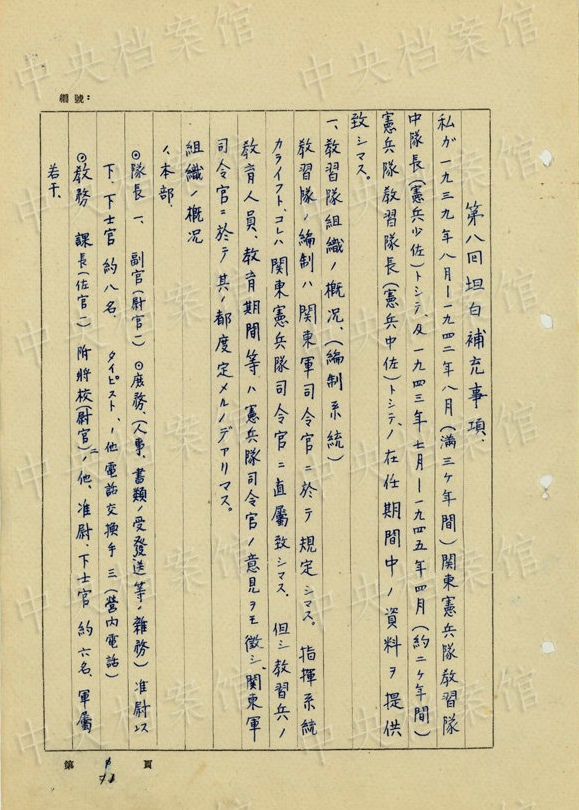 編號:
第八回坦白補充事項、
私ガ一九三九年八月—一九四二年八月(満三ヶ年間)関東憲兵隊教習隊
中隊長(憲兵少佐)トシテ、及一九四三年七月—一九四五年四月(約二ヶ年間)
憲兵隊教習隊長(憲兵中佐)トシテ、ノ在任期間中ノ資料ヲ提供
致シマス。
一、教習隊組織ノ概況、(編制系統)
教習隊ノ編制ハ関東軍司令官ニ於テ規定シマス。指揮系統
カライフト、ゴレハ関東憲兵隊司令官ニ直属致シマス、但シ教習兵ノ
教育人員、教育期間等ハ憲兵隊司令官ノ意見ヲモ徴シ、関東軍
司令官ニ於テ其ノ都度定メルノデアリマス。
組織ノ概況
ハ本部、
⊙隊長 一、副官(尉官一)⊙庶務、(人事、書類ノ受發送等ノ雜務)准尉以
下、下士官 約八名、タイピスト、ノ他電話交換手三(營内電話)
⊙教務 課長(佐官一)附將校(尉官二)ノ他、准尉、下士官 約六名、軍属
若干、
第 頁
中央档案馆